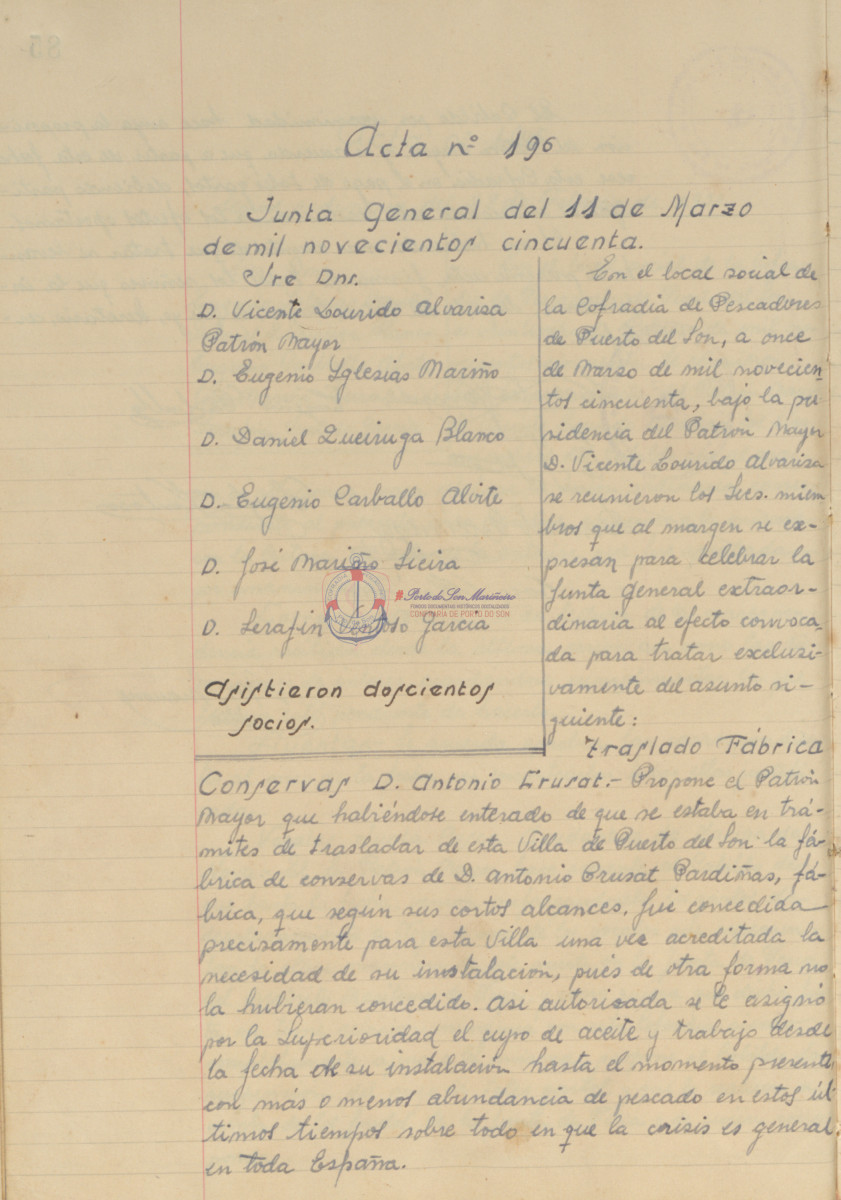 Acta nº 196
Junta General del 11 de Marzo
de mil novecientos cincuenta.
Sre Dnr.
D. Vicente Lourido Alvariza
Patrón Mayor
D. Eugenio Yglesias Mariño
D. Daniel Queiruga Blanco
D. Eugenio Carballo Alvite
D. José Mariño Sieira
D. Serafin Ventoso García
Asistieron doscientos
socios.
En el local social de
la Cofradia de Pescadores
de Puerto del Son, a once
de Marzo de mil novecien
tos cincuenta, bajo la pre
sidencia del Patrón Mayor
D. Vicente Lourido Alvariza
se reunieron los Sres. miem
bros que al margen se ex-
presan para celebrar la
Junta General extraor-
dinaria al efecto convoca-
da para tratar exclusi-
vamente del asunto si-
guiente:
Traslado Fábrica
Conservas D. Antonio Crusat.- Propone el Patrón
Mayor que habiéndose enterado de que se estaba en trá-
mites de trasladar de esta Villa de Puerto del Son la fá-
brica de conservas de D. Antonio Crusat Pardiñas, fá-
brica, que según sus cortos alcances, fué concedida
precisamente para esta Villa una vez acreditada la
necesidad de su instalación, pués de otra forma no
la hubieran concedido. Asi autorizada se le asignó
por la Superioridad el cupo de aceite y trabajo desde
la fecha de su instalación hasta el momento presente
con más o menos abundancia de pescado en estos úl
timos tiempos sobre todo en que la crisis es general
en toda España.
#Porto do Son Mariñeiro
FONDOS DOCUMENTAIS HISTÓRICOS DIXITALIZADOS
CONFRARÍA DE PORTO DO SON